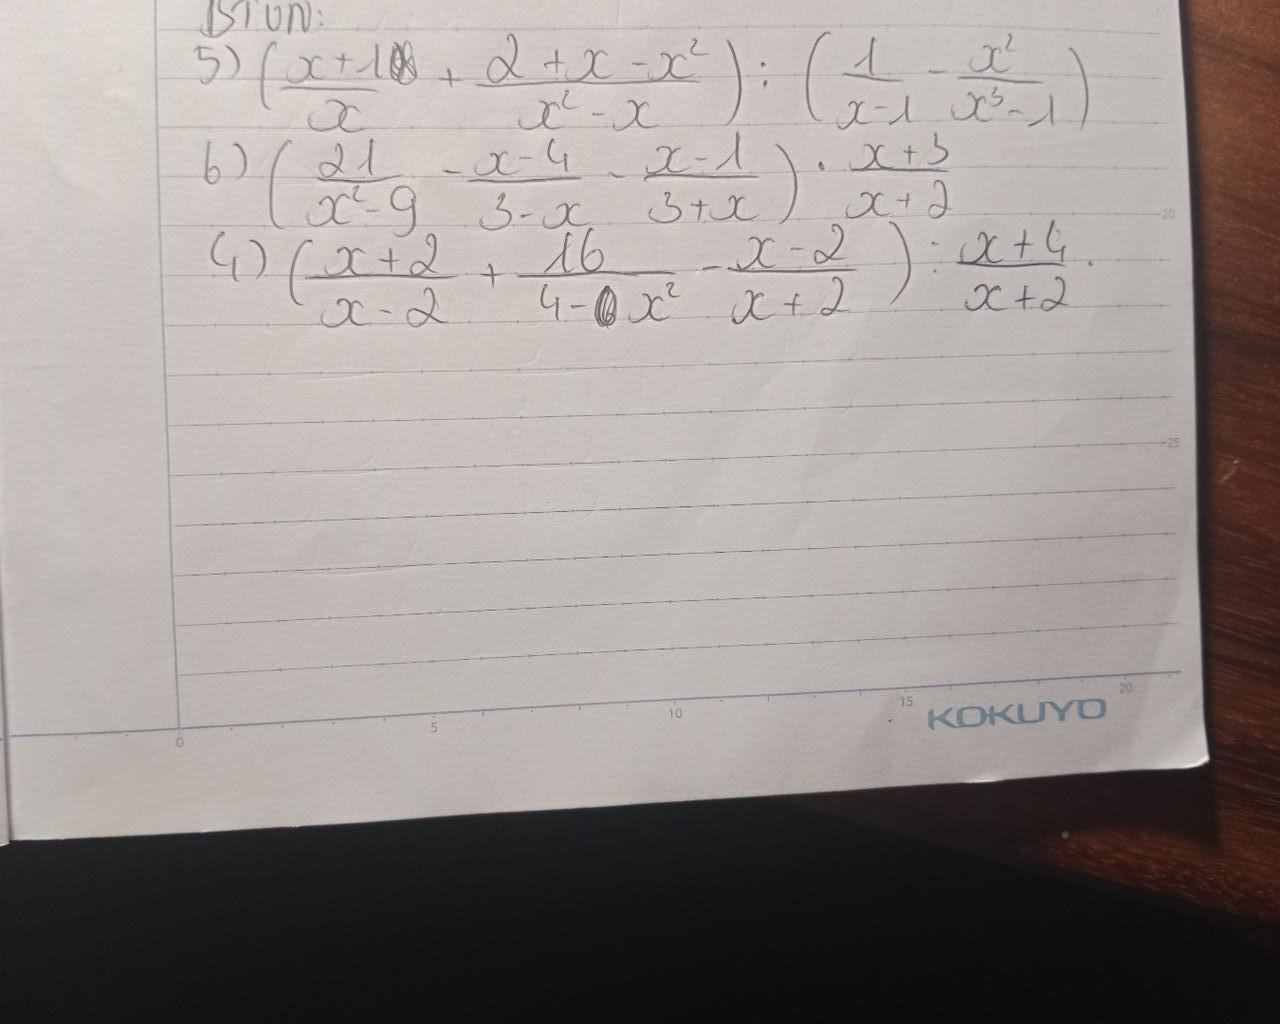 BTVN:
5) (x+1/x + 2+x-x²/x²-x) : (1/x-1 - x²/x³-1)
6) (21/x²-9 - x-4/3-x - x-1/3+x) . x+3/x+2
4) (x+2/x-2 + 16/4-x² - x-2/x+2) : x+4/x+2 .
20
25
0 5 10 15 20
KOKUYO